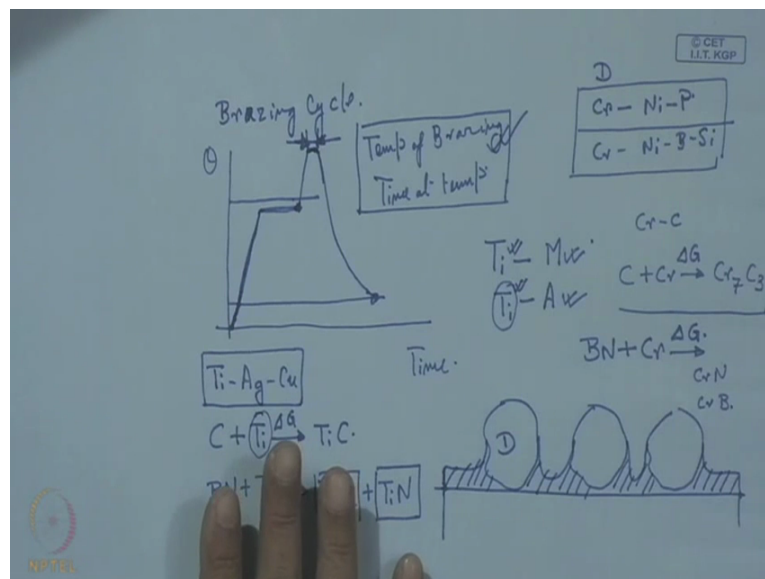 © CET
I.I.T. KGP
Brazing Cycle.
θ
Temp of Brazing
Time at temp
Time.
D
Cr - Ni - P
Cr - Ni - B - Si
Cr - C
Ti -
Ti - A
C + Cr ΔG → Cr7C3
BN + Cr ΔG. →
CrN
CrB.
Ti - Ag - Cu
C + Ti ΔG → TiC.
BN + + TiN
D
NPTEL